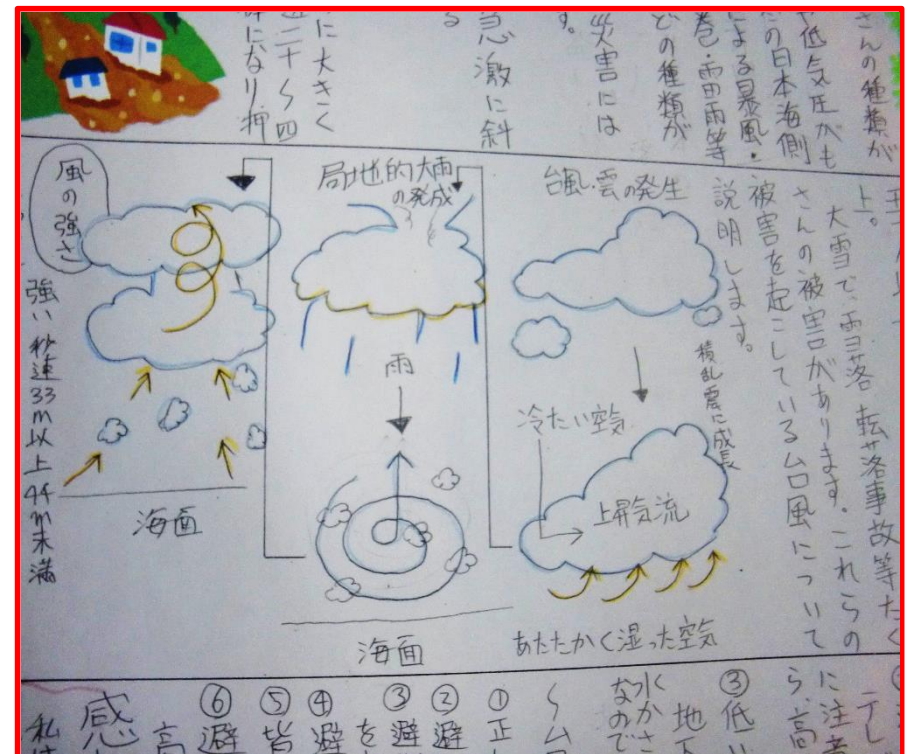 さんの種類が
や低気圧がも
たの日本海側
による暴風・
巻・雷雨等
どの種類が
災害には
す。
急激に斜
る
に大きく
二十〜四
になり押
上。
大雪で、雪落転落事故等たく
さんの被害があります。これらの
被害を起こしている台風について
説明します。
台風.雲の発生
積乱雲に成長
冷たい空気
上昇気流
あたたかく湿った空気
局地的大雨
の発成
雨
海面
風の強さ
強い 秒速33m以上44m未満
海面
に注意
ら、高
③低い
地下
水かさ
なので
〜台風
①正し
②避
③避
を
④避
⑤皆
⑥避
高
感
私は